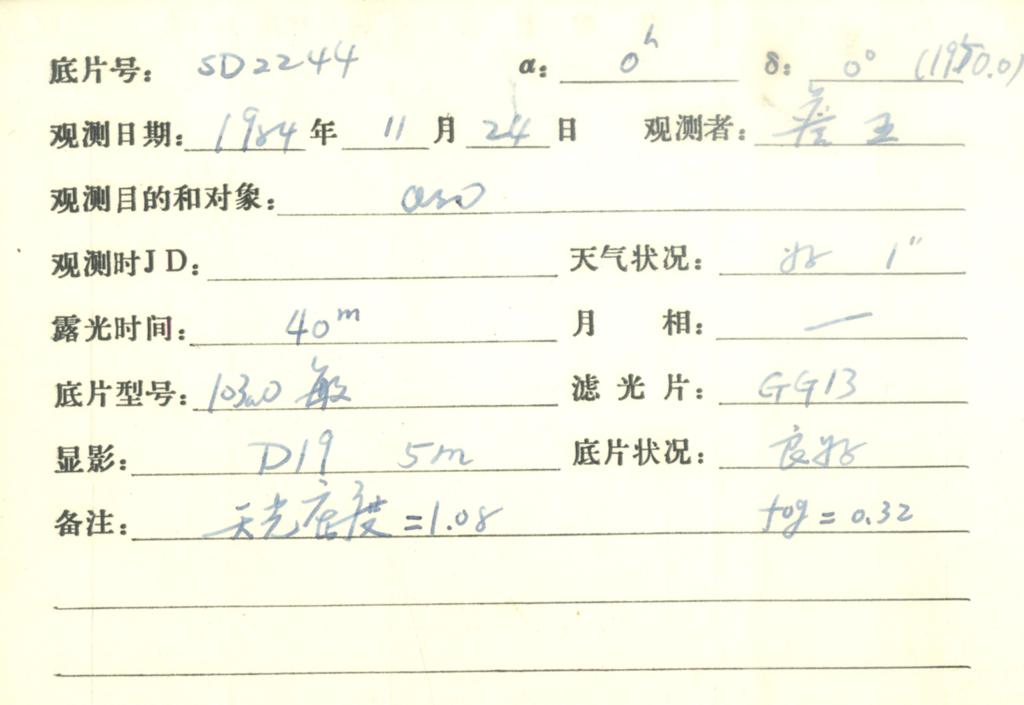 底片号： SD2244 α： 0ʰ δ： 0° (1950.0)
观测日期： 1984 年 11 月 24 日 观测者： 詹 王
观测目的和对象： QSO
观测时JD： 天气状况： 好 1"
露光时间： 40ᵐ 月 相： —
底片型号： 103aO 敏 滤光片： GG13
显影： D19 5m 底片状况： 良好
备注： 天光密度 = 1.08 fog = 0.32